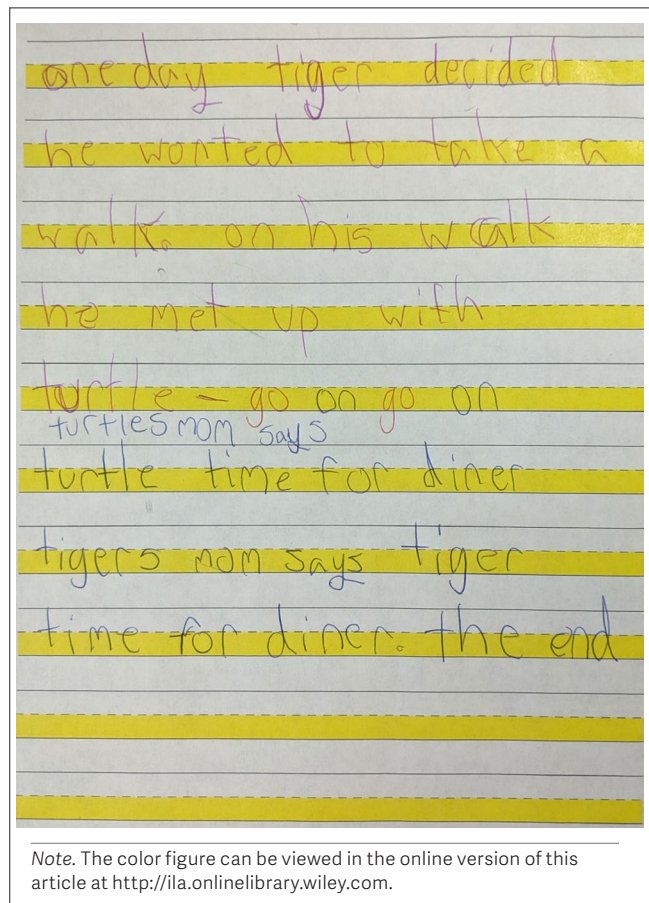 one day tiger decided
he wonted to take a
walk. on his walk
he met up with
turtle – go on go on
turtles mom says
turtle time for diner
tigers mom says tiger
time for diner. the end
Note. The color figure can be viewed in the online version of this
article at http://ila.onlinelibrary.wiley.com.